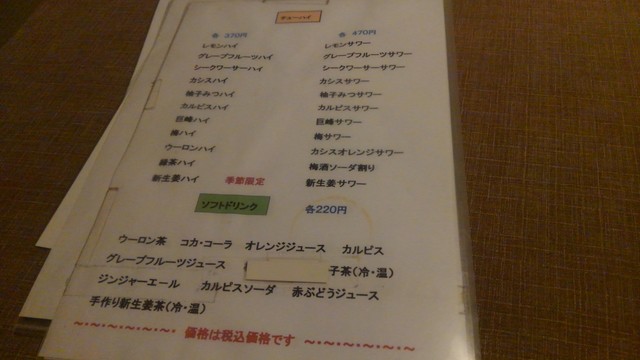 チューハイ
各 370円 各 470円
レモンハイ レモンサワー
グレープフルーツハイ グレープフルーツサワー
シークワーサーハイ シークワーサーサワー
カシスハイ カシスサワー
柚子みつハイ 柚子みつサワー
カルピスハイ カルピスサワー
巨峰ハイ 巨峰サワー
梅ハイ 梅サワー
ウーロンハイ カシスオレンジサワー
緑茶ハイ 梅酒ソーダ割り
新生姜ハイ 季節限定 新生姜サワー
ソフトドリンク 各220円
ウーロン茶 コカ・コーラ オレンジジュース カルピス
グレープフルーツジュース 子茶(冷・温)
ジンジャーエール カルピスソーダ 赤ぶどうジュース
手作り新生姜茶(冷・温)
~・~・~・~・~・~・ 価格は税込価格です ~・~・~・~・~・~・